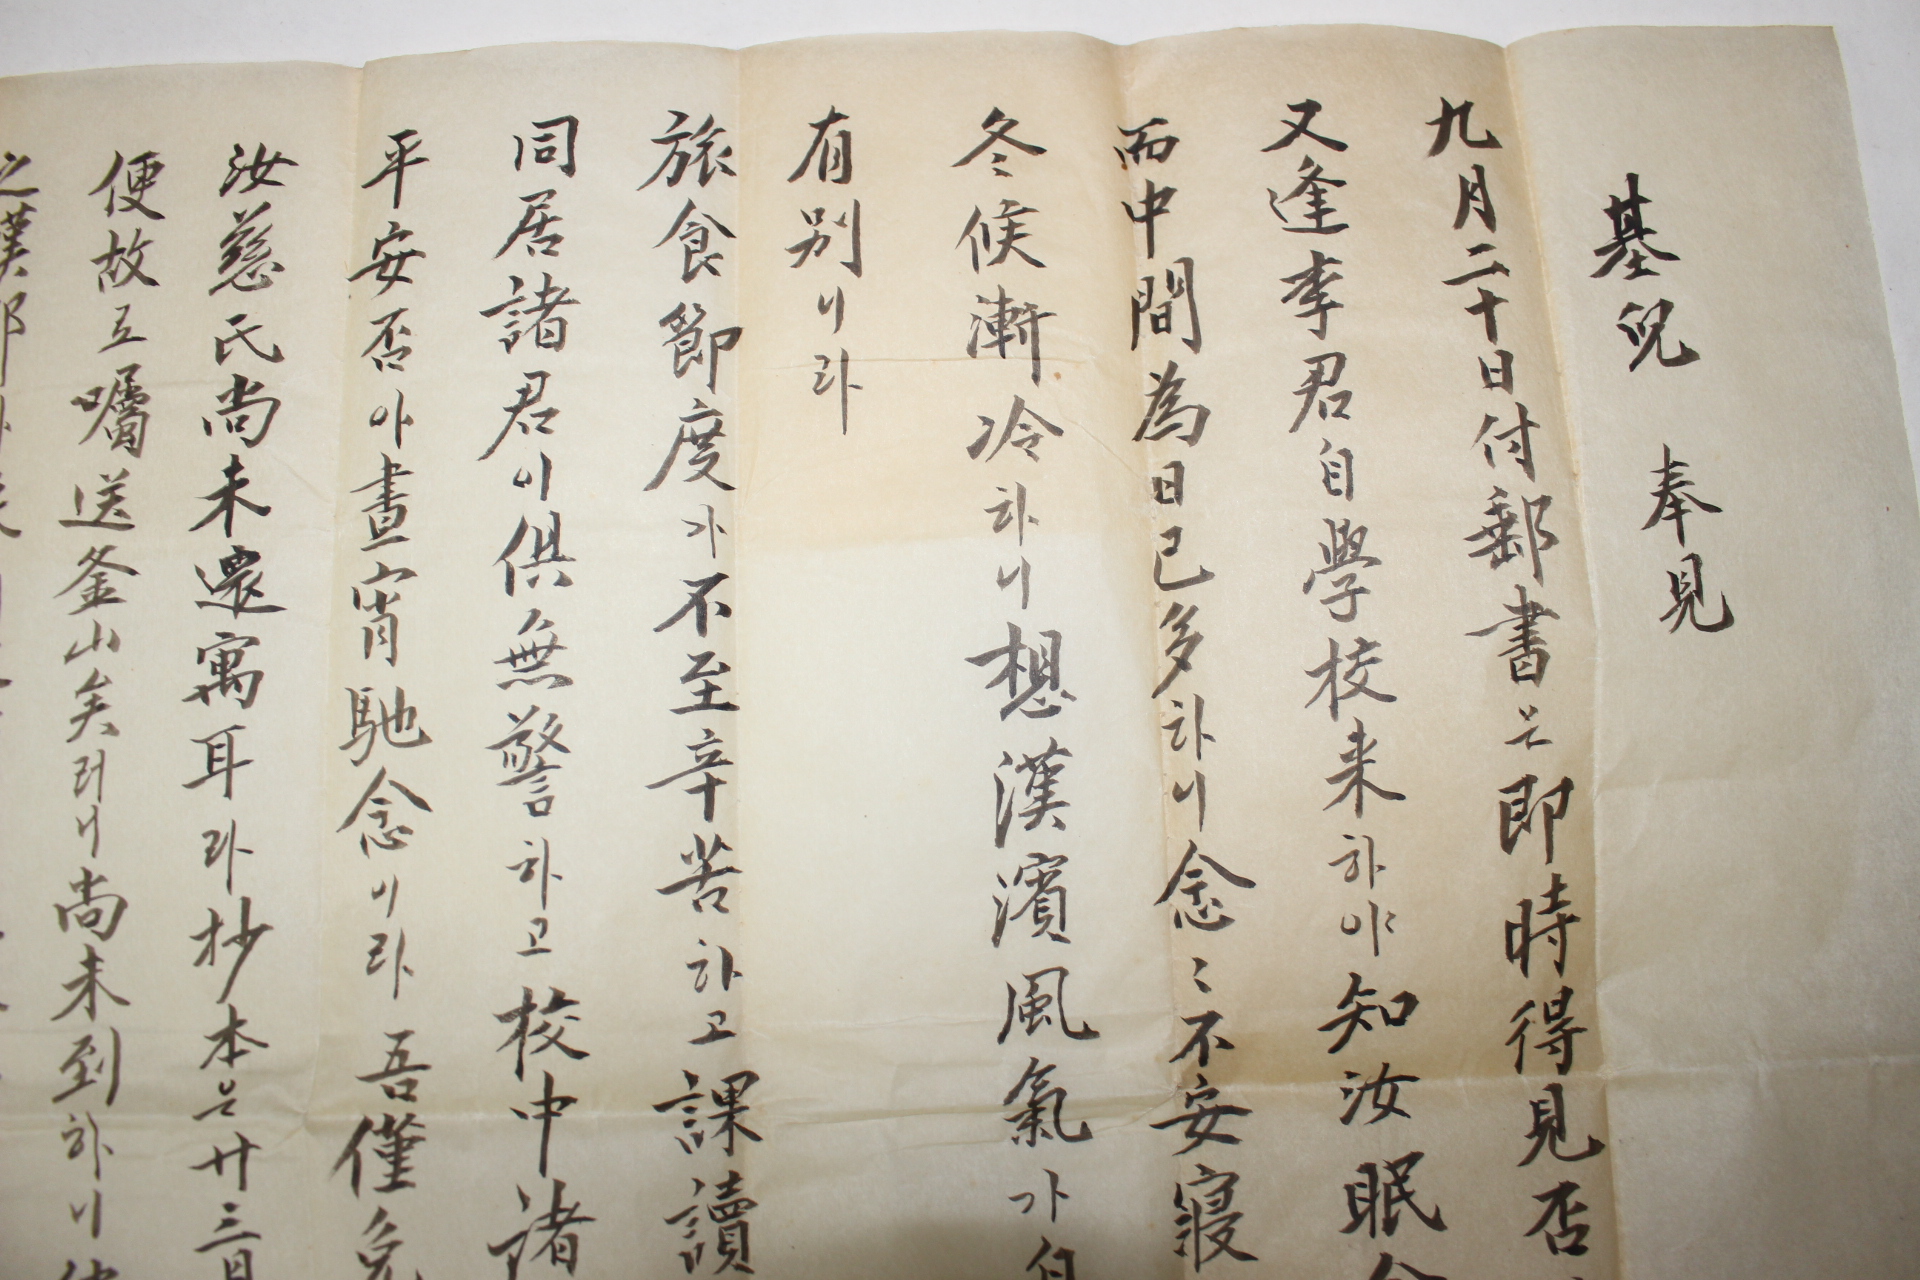 基兒 奉見
九月二十日付郵書는即時得見否
又逢李君自學校来하야知汝眠食
而中間為日已多하니念〻不安寢
冬候漸冷하니想漢濱風氣가自
有別이라
旅食節度가不至辛苦하고課讀
同居諸君이俱無警하고校中諸
平安否아晝宵馳念이라吾僅免
汝慈氏尚未還寓耳라抄本은廿三日
便故로囑送釜山矣러니尚未到하니
之漢